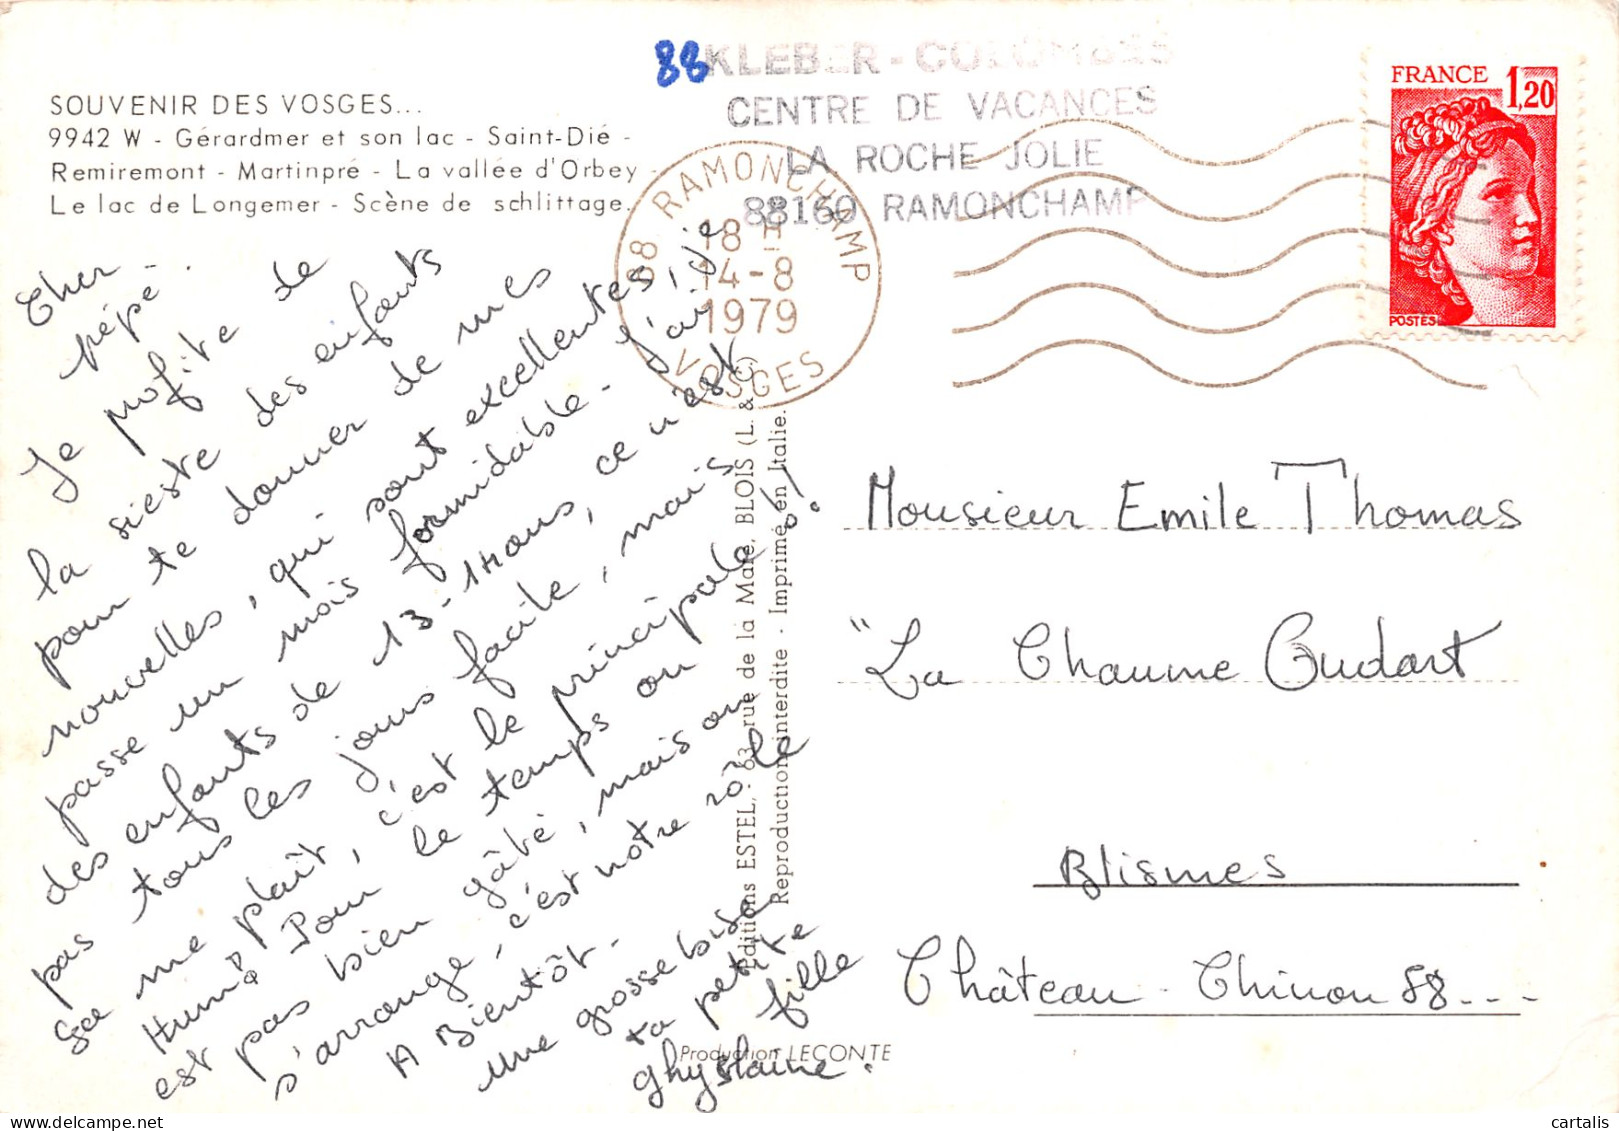 88 KLEBER - COLOMBES
CENTRE DE VACANCES
LA ROCHE JOLIE
88160 RAMONCHAMP
SOUVENIR DES VOSGES...
9942 W - Gérardmer et son lac - Saint-Dié -
Remiremont - Martinpré - La vallée d'Orbey -
Le lac de Longemer - Scène de schlittage.
88 RAMONCHAMP
18 H
14-8
1979
VOSGES
FRANCE 1,20
POSTES
Cher
pépé - .
Je profite de
la sieste des enfants
pour te donner de mes
nouvelles, qui sont excellentes, je
passe un mois formidable - J'ai
des enfants de 13-14 ans, ce n'est
pas tous les jours facile, mais
ça me plaît, c'est le principale !
Hum! Pour le temps on
est pas bien gâté, mais on
s'arrange, c'est notre rôle
A Bientôt -
Une grosse bise
ta petite
fille
ghyslaine.
Editions ESTEL, - 63, rue de la Mare, BLOIS (L. & C.)
Reproduction interdite - Imprimé en Italie.
Production LECONTE
Monsieur Emile Thomas
"La Chaume Oudart
Blismes
Château - Chinon 58 ---
cartalis | Delcampe.net